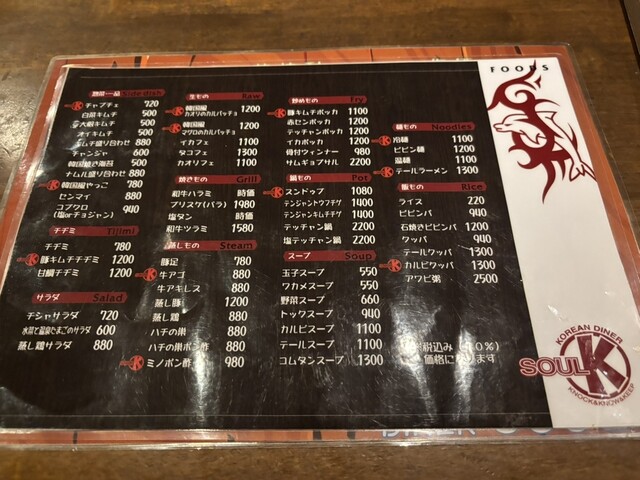 FOODS
惣菜・一品 Side dish
K チャプチェ 720
白菜キムチ 500
大根キムチ 500
オイキムチ 500
キムチ盛り合わせ 880
チャンジャ 600
韓国焼き海苔 500
ナムル盛り合わせ 880
K 韓国風やっこ 780
センマイ 880
コブクロ 940
(塩orチョジャン)
チヂミ Tijimi
チヂミ 780
K 豚キムチチヂミ 1200
甘鯛チヂミ 1200
サラダ Salad
チシャサラダ 720
水菜と温泉たまごのサラダ 600
蒸し鶏サラダ 880
生もの Raw
K 韓国風 1200
カオリのカルパッチョ
K 韓国風 1200
マグロのカルパッチョ
イカフェ 1100
タコフェ 1300
カオリフェ 1100
焼きもの Grill
和牛ハラミ 時価
ブリスケ(バラ) 1980
塩タン 時価
和牛ツラミ 1580
蒸しもの Steam
豚足 780
K 牛アゴ 880
牛アキレス 880
蒸し豚 1200
蒸し鶏 880
ハチの巣 880
ハチの巣ポン酢 880
K ミノポン酢 980
炒めもの Fry
K 豚キムチポッカ 1100
赤センポッカ 1100
テッチャンポッカ 1200
イカポッカ 1200
骨付ウィンナー 980
サムギョプサル 2200
鍋もの Pot
K スンドゥブ 1080
テンジャントウフチゲ 1100
テンジャンキムチチゲ 1100
テッチャン鍋 2200
塩テッチャン鍋 2200
スープ Soup
玉子スープ 550
ワカメスープ 550
野菜スープ 660
トックスープ 940
カルビスープ 1100
テールスープ 1100
コムタンスープ 1300
麺もの Noodles
K 冷麺 1100
ビビン麺 1200
温麺 1100
K テールラーメン 1300
飯もの Rice
ライス 220
ビビンバ 940
石焼きビビンバ 1200
クッパ 940
テールクッパ 1300
K カルビクッパ 1300
アワビ粥 2500
税込み(10%)
価格になります
KOREAN DINER
SOUL K
KNOCK&KNOW&KEEP